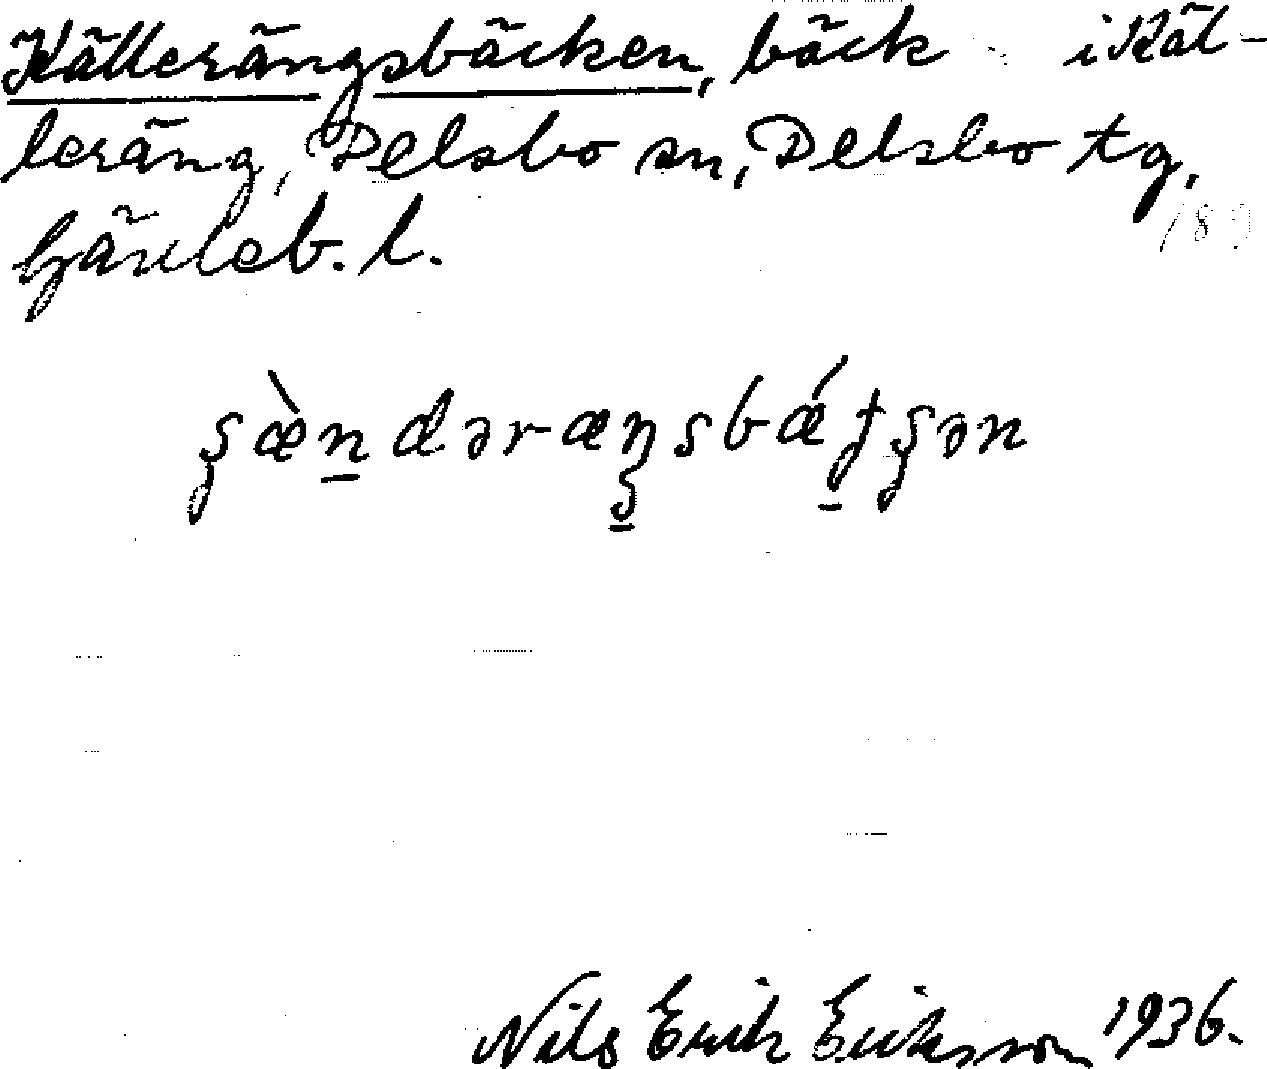 Källerängsbäcken, bäck i Käl-
leräng, Delsbo sn, Delsbo tg,
Gävleb. l.
189
Nils Erik Eriksson 1936.